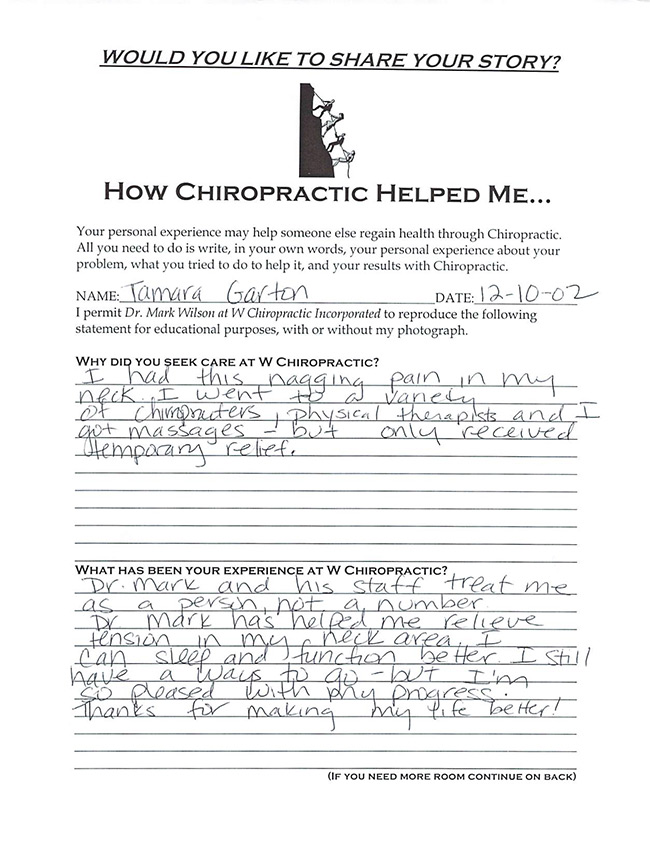 WOULD YOU LIKE TO SHARE YOUR STORY?
HOW CHIROPRACTIC HELPED ME...
Your personal experience may help someone else regain health through Chiropractic.
All you need to do is write, in your own words, your personal experience about your
problem, what you tried to do to help it, and your results with Chiropractic.
NAME: Tamara Garton DATE: 12-10-02
I permit Dr. Mark Wilson at W Chiropractic Incorporated to reproduce the following
statement for educational purposes, with or without my photograph.
WHY DID YOU SEEK CARE AT W CHIROPRACTIC?
I had this nagging pain in my
neck. I went to a variety
of Chiropracters, physical therapists and I
got massages - but only received
temporary relief.
WHAT HAS BEEN YOUR EXPERIENCE AT W CHIROPRACTIC?
Dr. Mark and his staff treat me
as a person, not a number.
Dr Mark has helped me relieve
tension in my neck area. I
can sleep and function better. I still
have a ways to go - but I'm
so pleased with my progress.
Thanks for making my life better!
(IF YOU NEED MORE ROOM CONTINUE ON BACK)